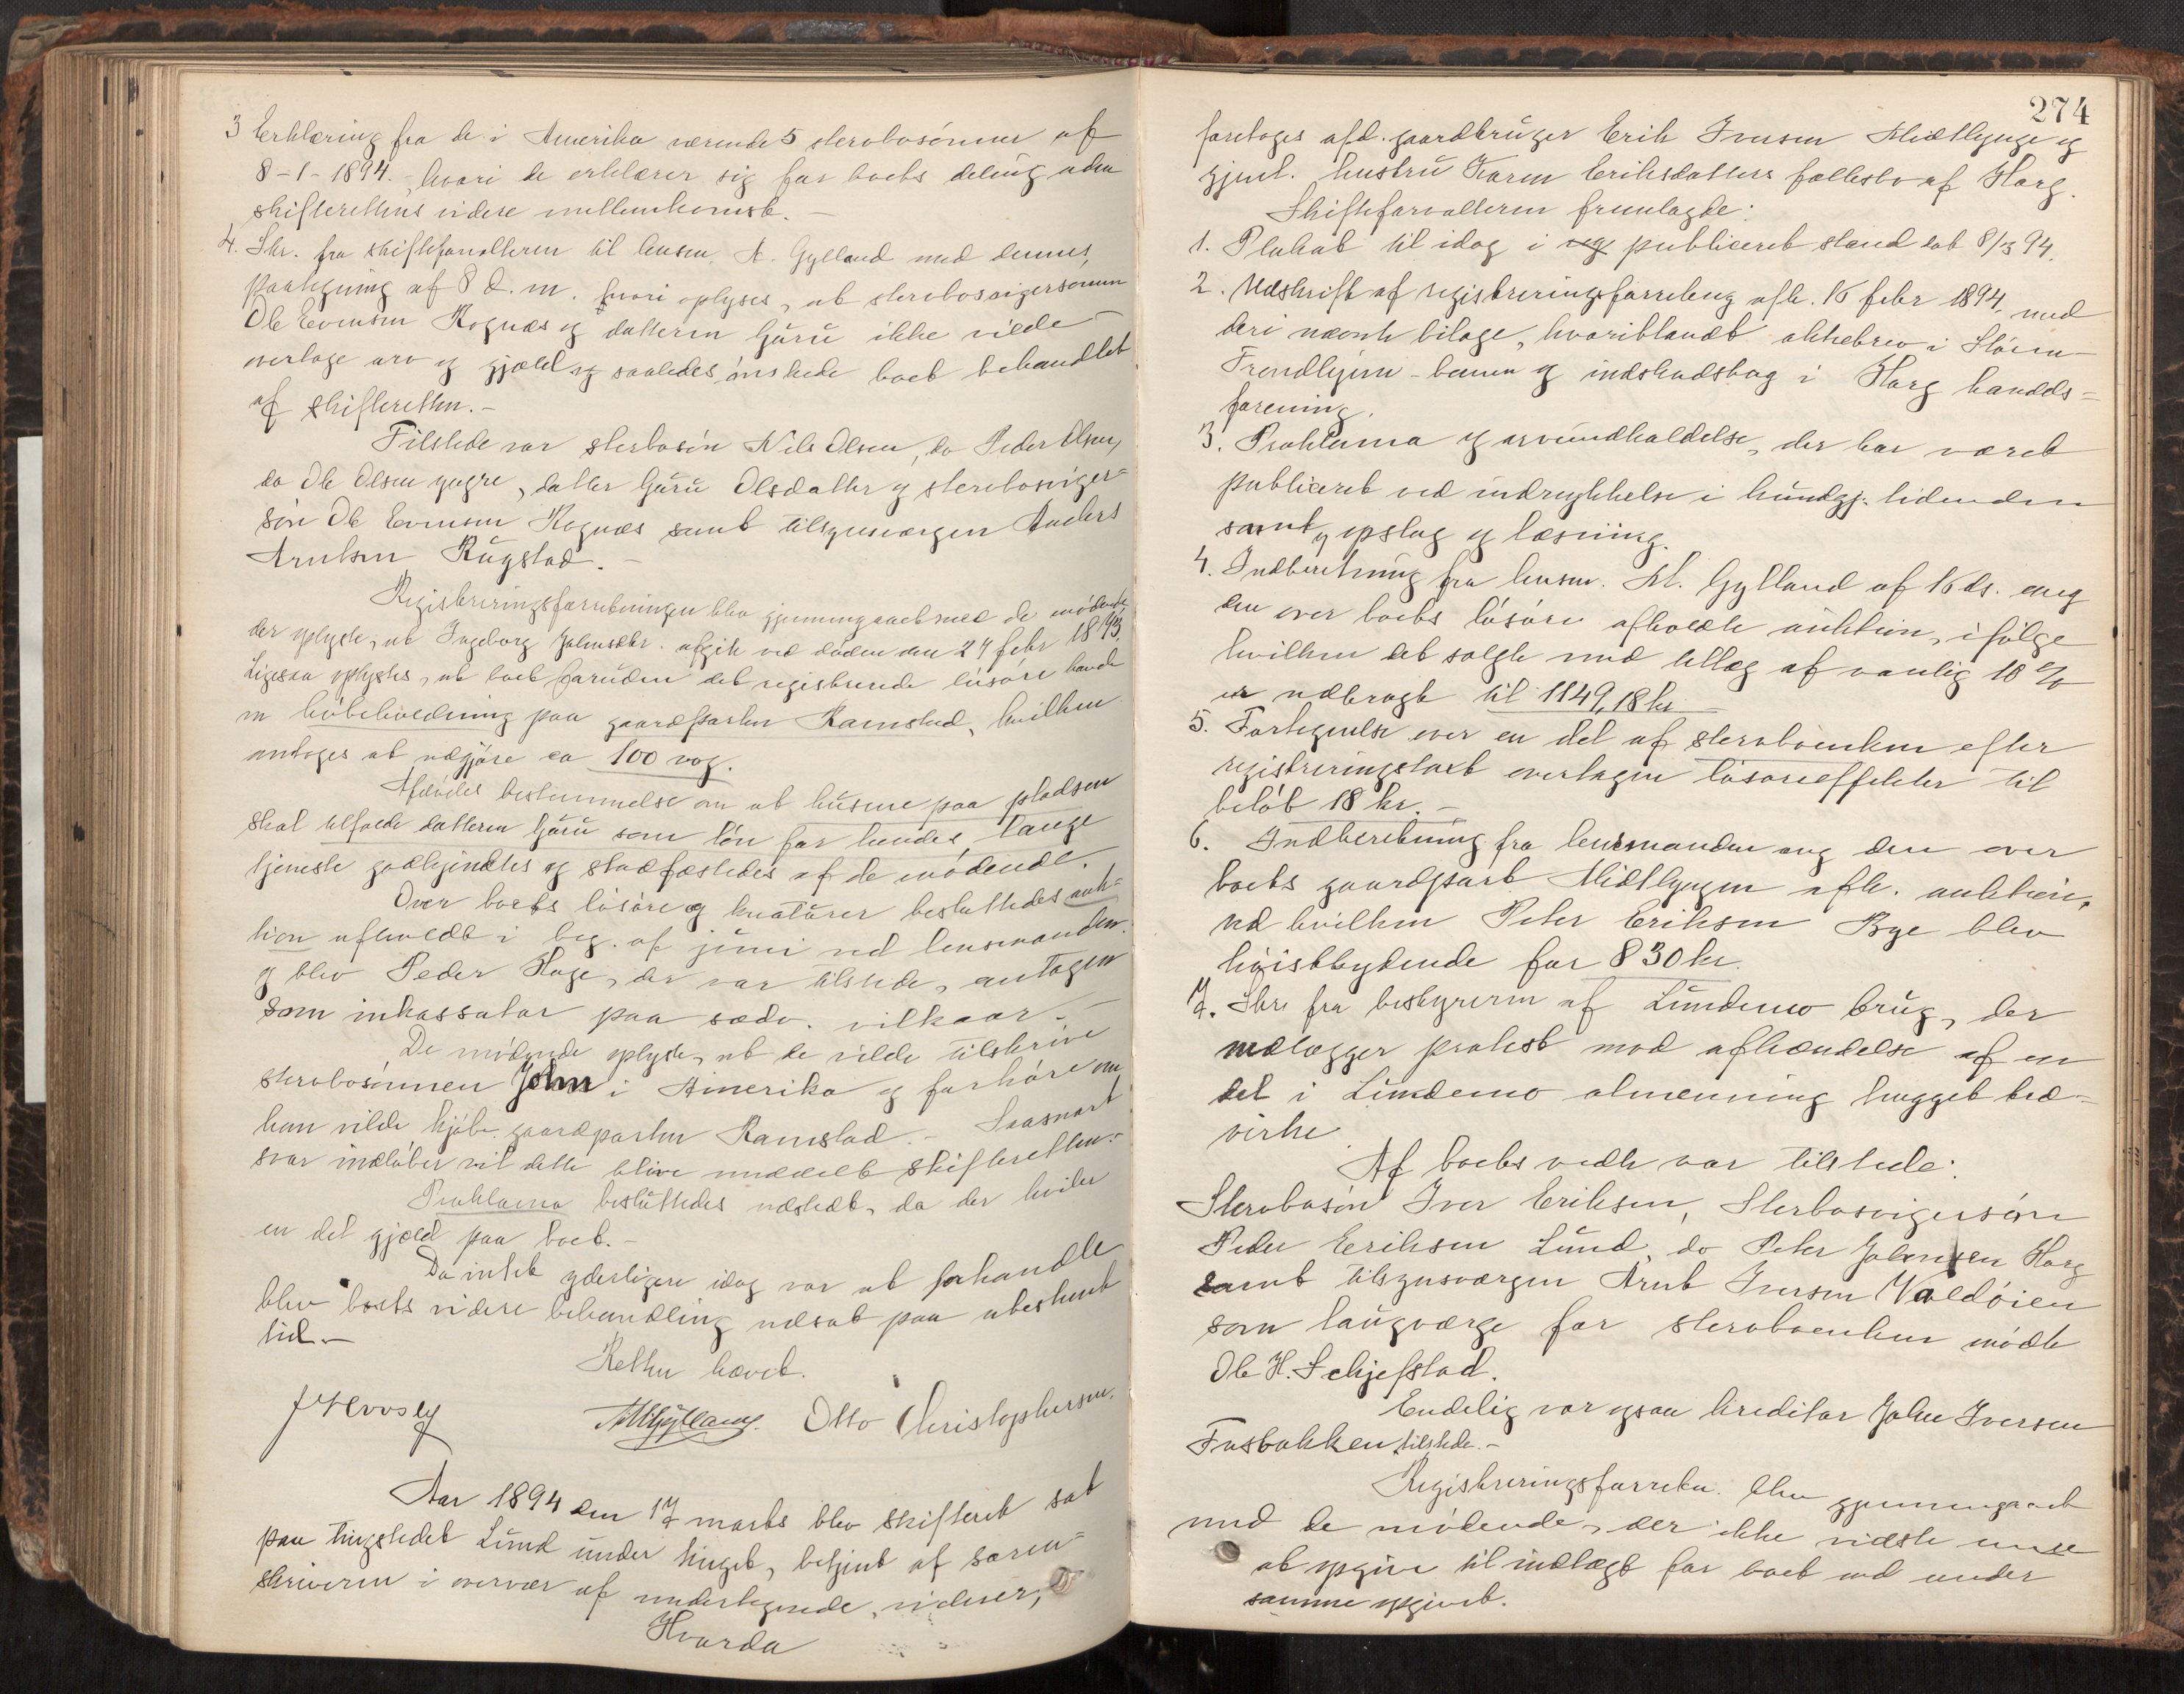 3 Erklæring fra de i Amerika værende 5 stervbosönner af
8-1-1894. hvori de erklærer sig for boets deling uden
skifterettens videre mellemkomst. -
4. Skr. fra skifteforvalteren til lensm. A. Gylland med dennes
paategning af 8 d. m. hvori oplyses, at stervbosvigersønnen
Ole Evensen Kognæs og datteren Guru ikke vilde
overtage arv og gjæld og saaledes önskede boet behandlet
af skifteretten. -
Tilstede var sterbosön Nils Olsen, do Peder Olsen,
do Ole Olsen yngre, datter Guru Olsdatter og stervbosviger=
sön Ole Evensen Kognæs samt tilsynsværgen Anders
Arntsen Rugstad. -
Registreringsforretningen blev gjennemgaaet med de mödende
der oplyste, at Ingeborg Johnsdtr. afgik ved döden den 24 febr 1893.
Ligesaa oplystes, at boet foruden det registrerede lösöre havde
en höbeholdning paa gaardparten Ramstad, hvilken
antoges at udgjöre ca 100 vog.
Afdödes bestemmelse om at husene paa pladsen
skal tilfalde datteren Guru som lön for hendes lange
tjeneste godkjendtes og stadfæstedes af de mödende.
Over boets lösöre og kreaturer besluttedes auk=
tion afholdt i beg. af juni ved lensmanden.
og blev Peder Hage, der var tilstede, antagen
som inkassator paa sædv. vilkaar. -
De mödende oplyste, at de vilde tilskrive
stervbosönnen John i Amerika og forhöre om
han vilde kjöbe gaardparten Ramstad. - Saasnart
svar indlöber vil dette blive meddelt skifteretten. -
Proklama besluttedes udstedt, da der hviler
en del gjæld paa boet. -
Da intet yderligere idag var at forhandle
blev boets videre behandling udsat paa ubestemt
tid. -
Retten hævet.
A Gylland. Otto Christophersen.
Aar 1894 den 17 marts blev skifteret sat
paa tingstedet Lund under tinget, betjent af soren=
skriveren i overvær af undertegnede vidner,
Hvorda
274
foretoges afd. gaardbruger Erik Iversen Midtlynge og
gjenl. hustru Karen Eriksdatters fællesbo af Harg.
Skifteforvalteren fremlagde:
1. Plakat til idag i publiceret stand dat 8/3 94.
2. Udskrift af registreringsforretning afh. 16 febr 1894, med
deri nævnte bilage, hvoriblandt aktiebrev i Stören
Trondhjem - banen og indskudsbog i Harg handels=
forening.
3. Proklama og arveindkaldelse, der har været
publiceret ved indrykkelse i kundgj. tidenden
samt opslag og læsning.
4. Indberetning fra lensm. A. Gylland af 16 ds. ang
den over boets lösöre afholdte auktion, ifölge
hvilken det solgte med tillæg af vanlig 10 %
er udbragt til 1149,18 kr
5. Fortegnelse over en del af stervboenken efter
registreringstaxt overtagen lösöreeffekter til
belöb 18 kr. -
6. Indberetning fra lensmanden ang den over
boets gaardpart Midtlyngen afh. auktion,
ved hvilken Peter Eriksen Bye blev
höistbydende for 830 kr.
7. Skr. fra bestyreren af Lundemo brug, der
nedlægger protest mod afhændelse af en
del i Lundemo almenning hugget ved-
virke.
Af boets vedk var tilstede:
Stervbosön Iver Eriksen, Sterbosvigersön
Peder Eriksen Lund, do Peter Johnsen Harg
samt tilsynsværgen Arnt Iversen Valdöien
som laugværge for stervboenken mödte
Ole H. Skjefstad.
Endelig var ogsaa kreditor John Iversen
Fusbakken tilstede. -
Registreringsforretn. blev gjennemgaaet
med de mödende, der ikke vidste mere
at opgive til indtægt for boet end under
samme opgivet.